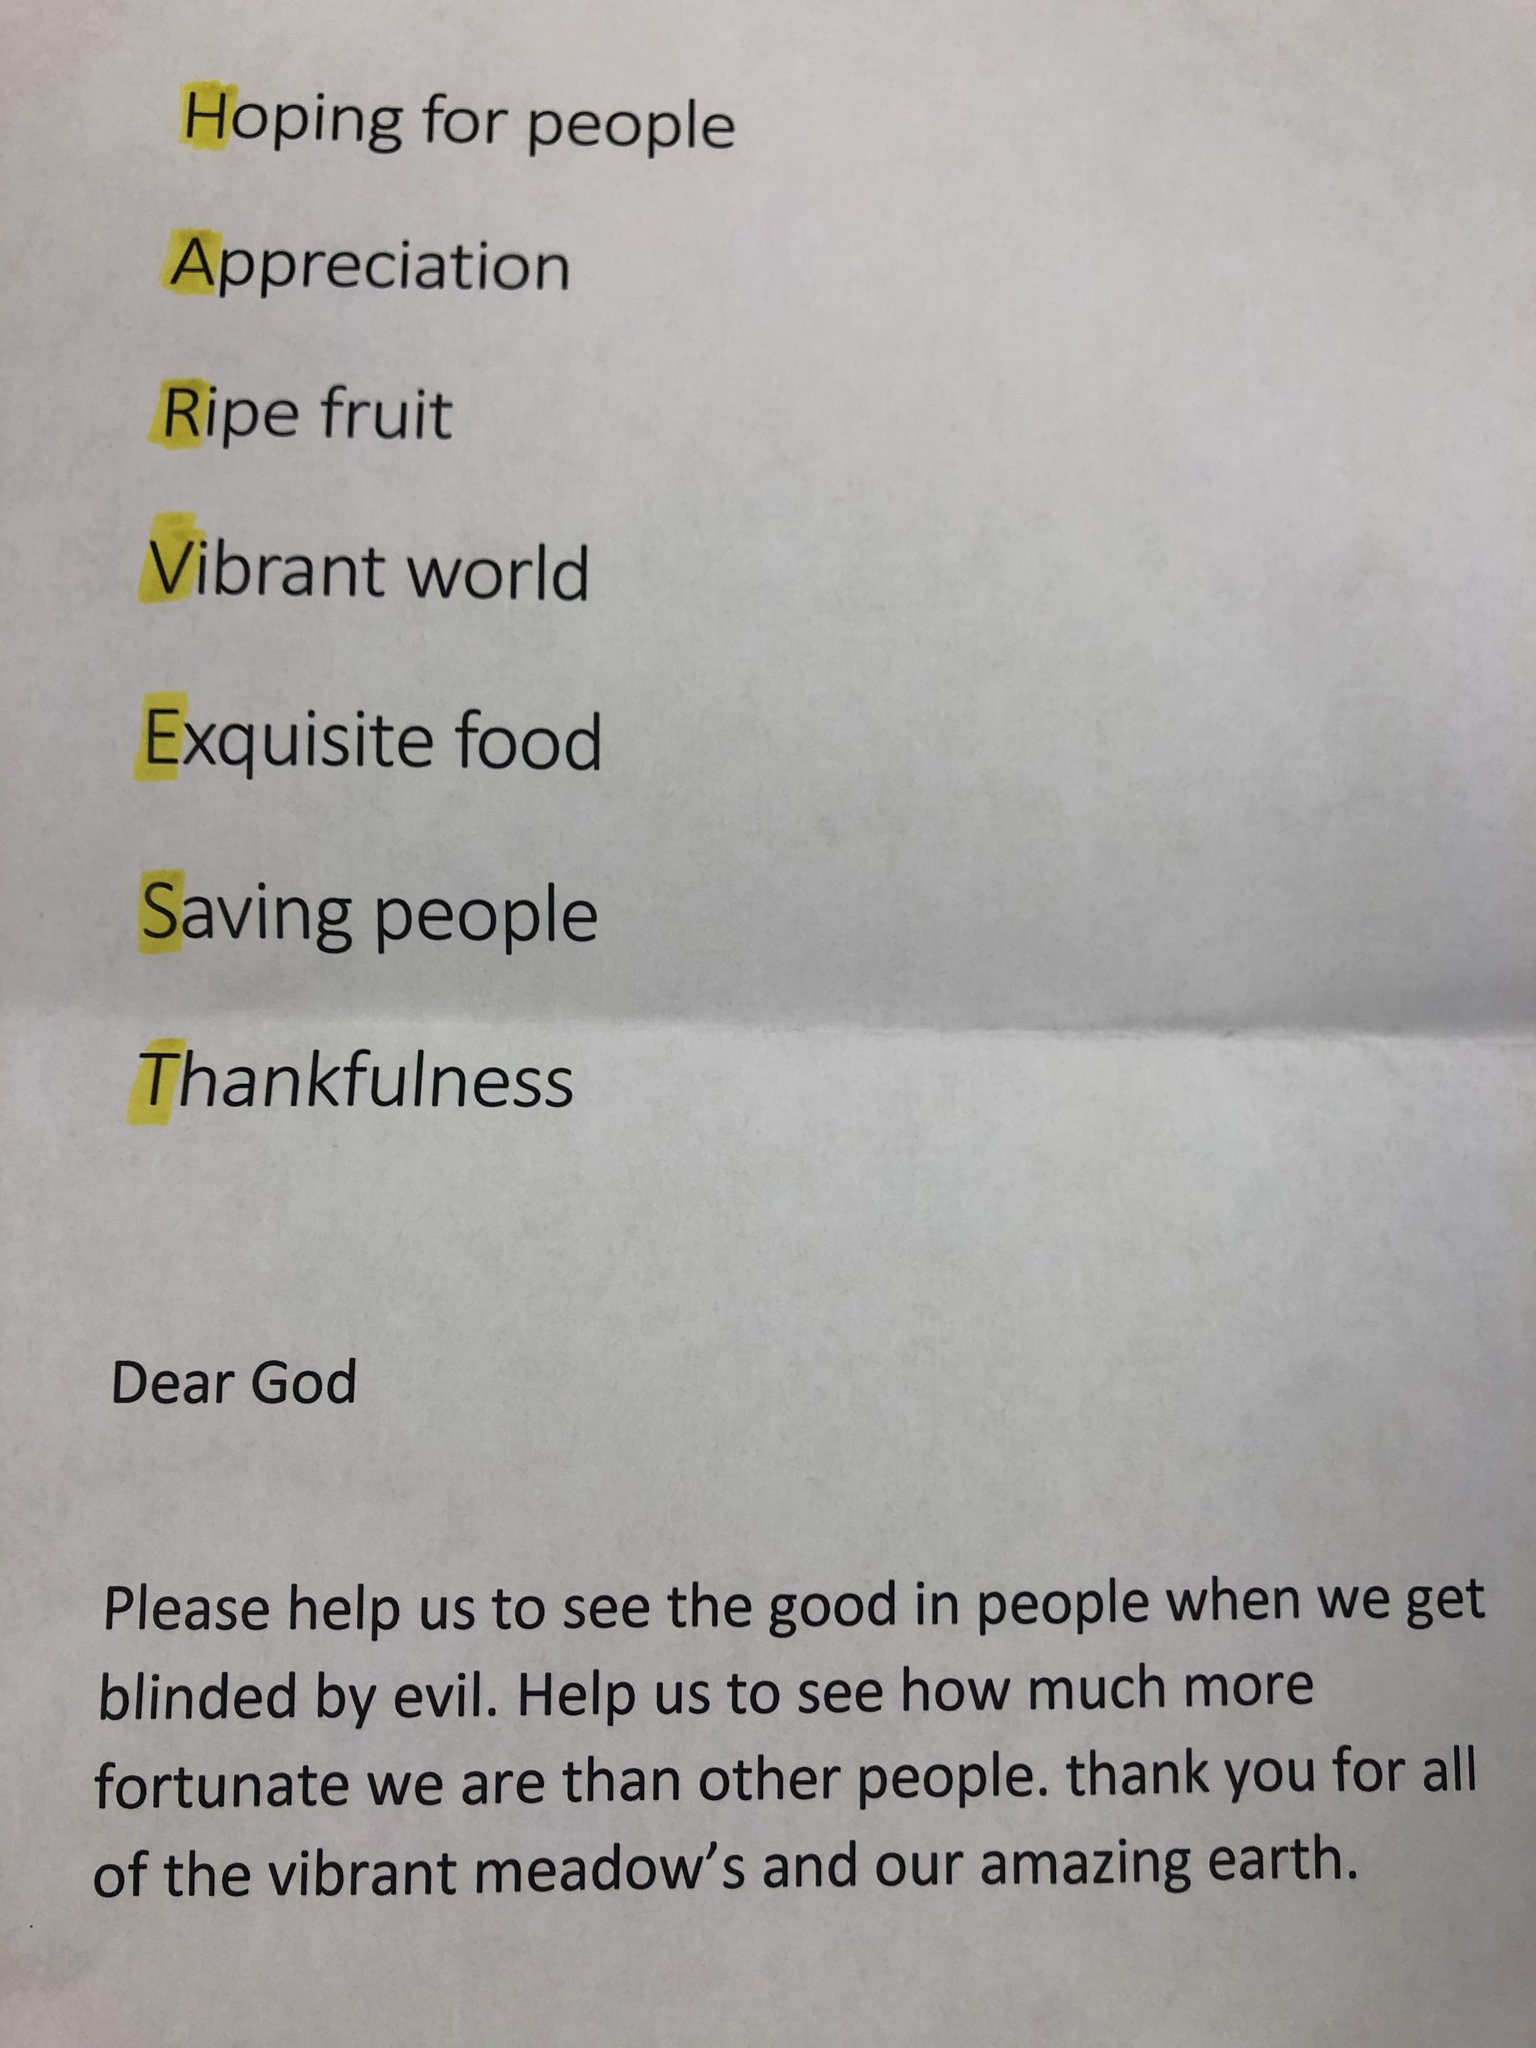 Hoping for people
Appreciation
Ripe fruit
Vibrant world
Exquisite food
Saving people
Thankfulness
Dear God
Please help us to see the good in people when we get
blinded by evil. Help us to see how much more
fortunate we are than other people. thank you for all
of the vibrant meadow’s and our amazing earth.